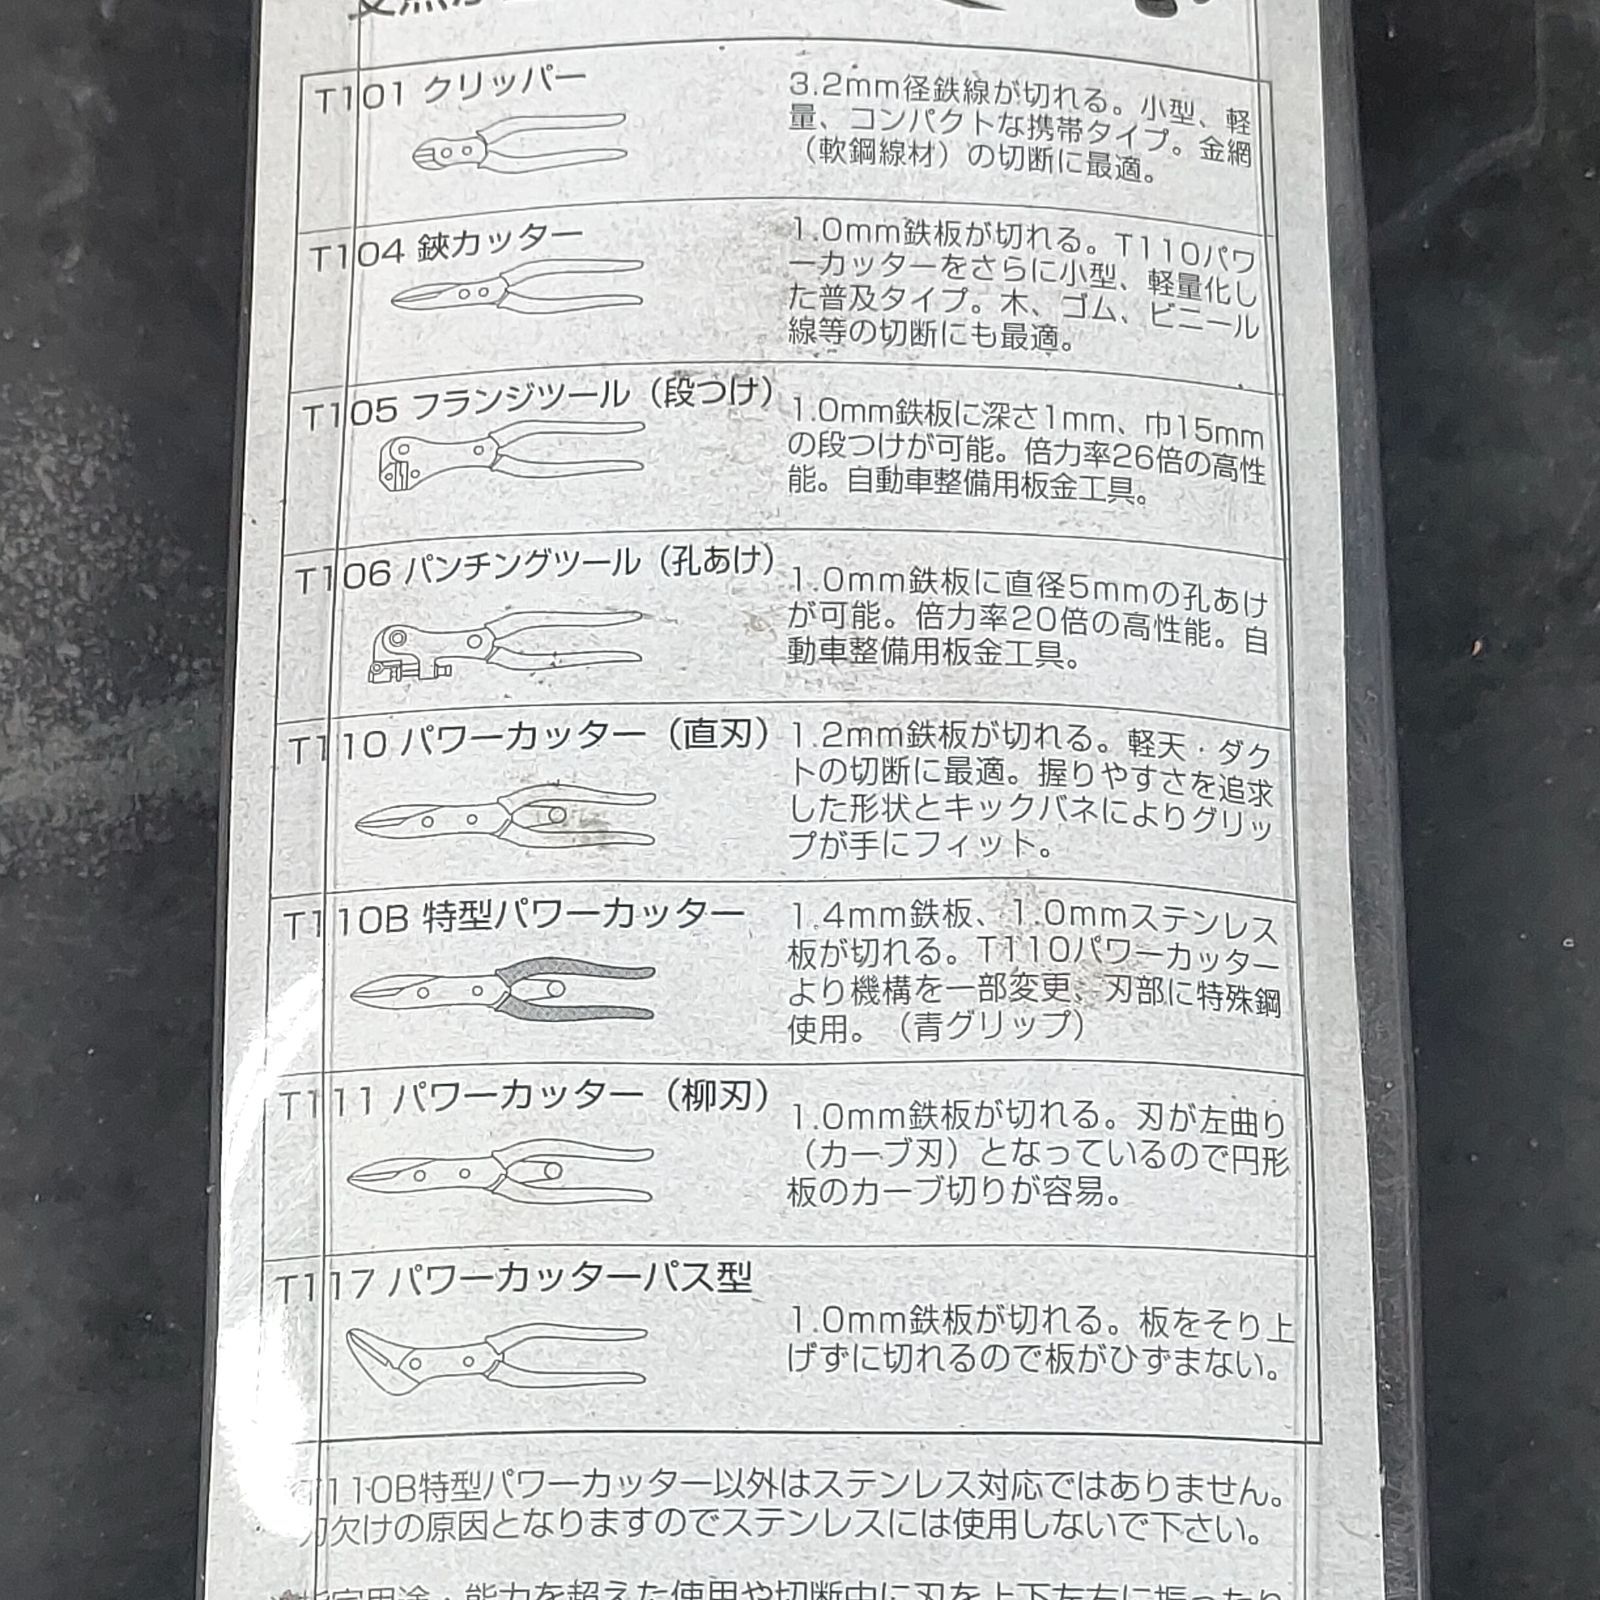 T101 クリッパー
3.2mm径鉄線が切れる。小型、軽
量、コンパクトな携帯タイプ。金網
（軟鋼線材）の切断に最適。
T104 鋏カッター
1.0mm鉄板が切れる。T110パワ
ーカッターをさらに小型、軽量化し
た普及タイプ。木、ゴム、ビニール
線等の切断にも最適。
T105 フランジツール（段つけ）
1.0mm鉄板に深さ1mm、巾15mm
の段つけが可能。倍力率26倍の高性
能。自動車整備用板金工具。
T106 パンチングツール（孔あけ）
1.0mm鉄板に直径5mmの孔あけ
が可能。倍力率20倍の高性能。自
動車整備用板金工具。
T110 パワーカッター（直刃）
1.2mm鉄板が切れる。軽天・ダク
トの切断に最適。握りやすさを追求
した形状とキックバネによりグリッ
プが手にフィット。
T110B 特型パワーカッター
1.4mm鉄板、1.0mmステンレス
板が切れる。T110パワーカッター
より機構を一部変更、刃部に特殊鋼
使用。（青グリップ）
T111 パワーカッター（柳刃）
1.0mm鉄板が切れる。刃が左曲り
（カーブ刃）となっているので円形
板のカーブ切りが容易。
T117 パワーカッターパス型
1.0mm鉄板が切れる。板をそり上
げずに切れるので板がひずまない。
T110B特型パワーカッター以外はステンレス対応ではありません。
刃欠けの原因となりますのでステンレスには使用しないで下さい。
指定用途・能力を超えた使用や切断中に刃を上下左右に振ったり